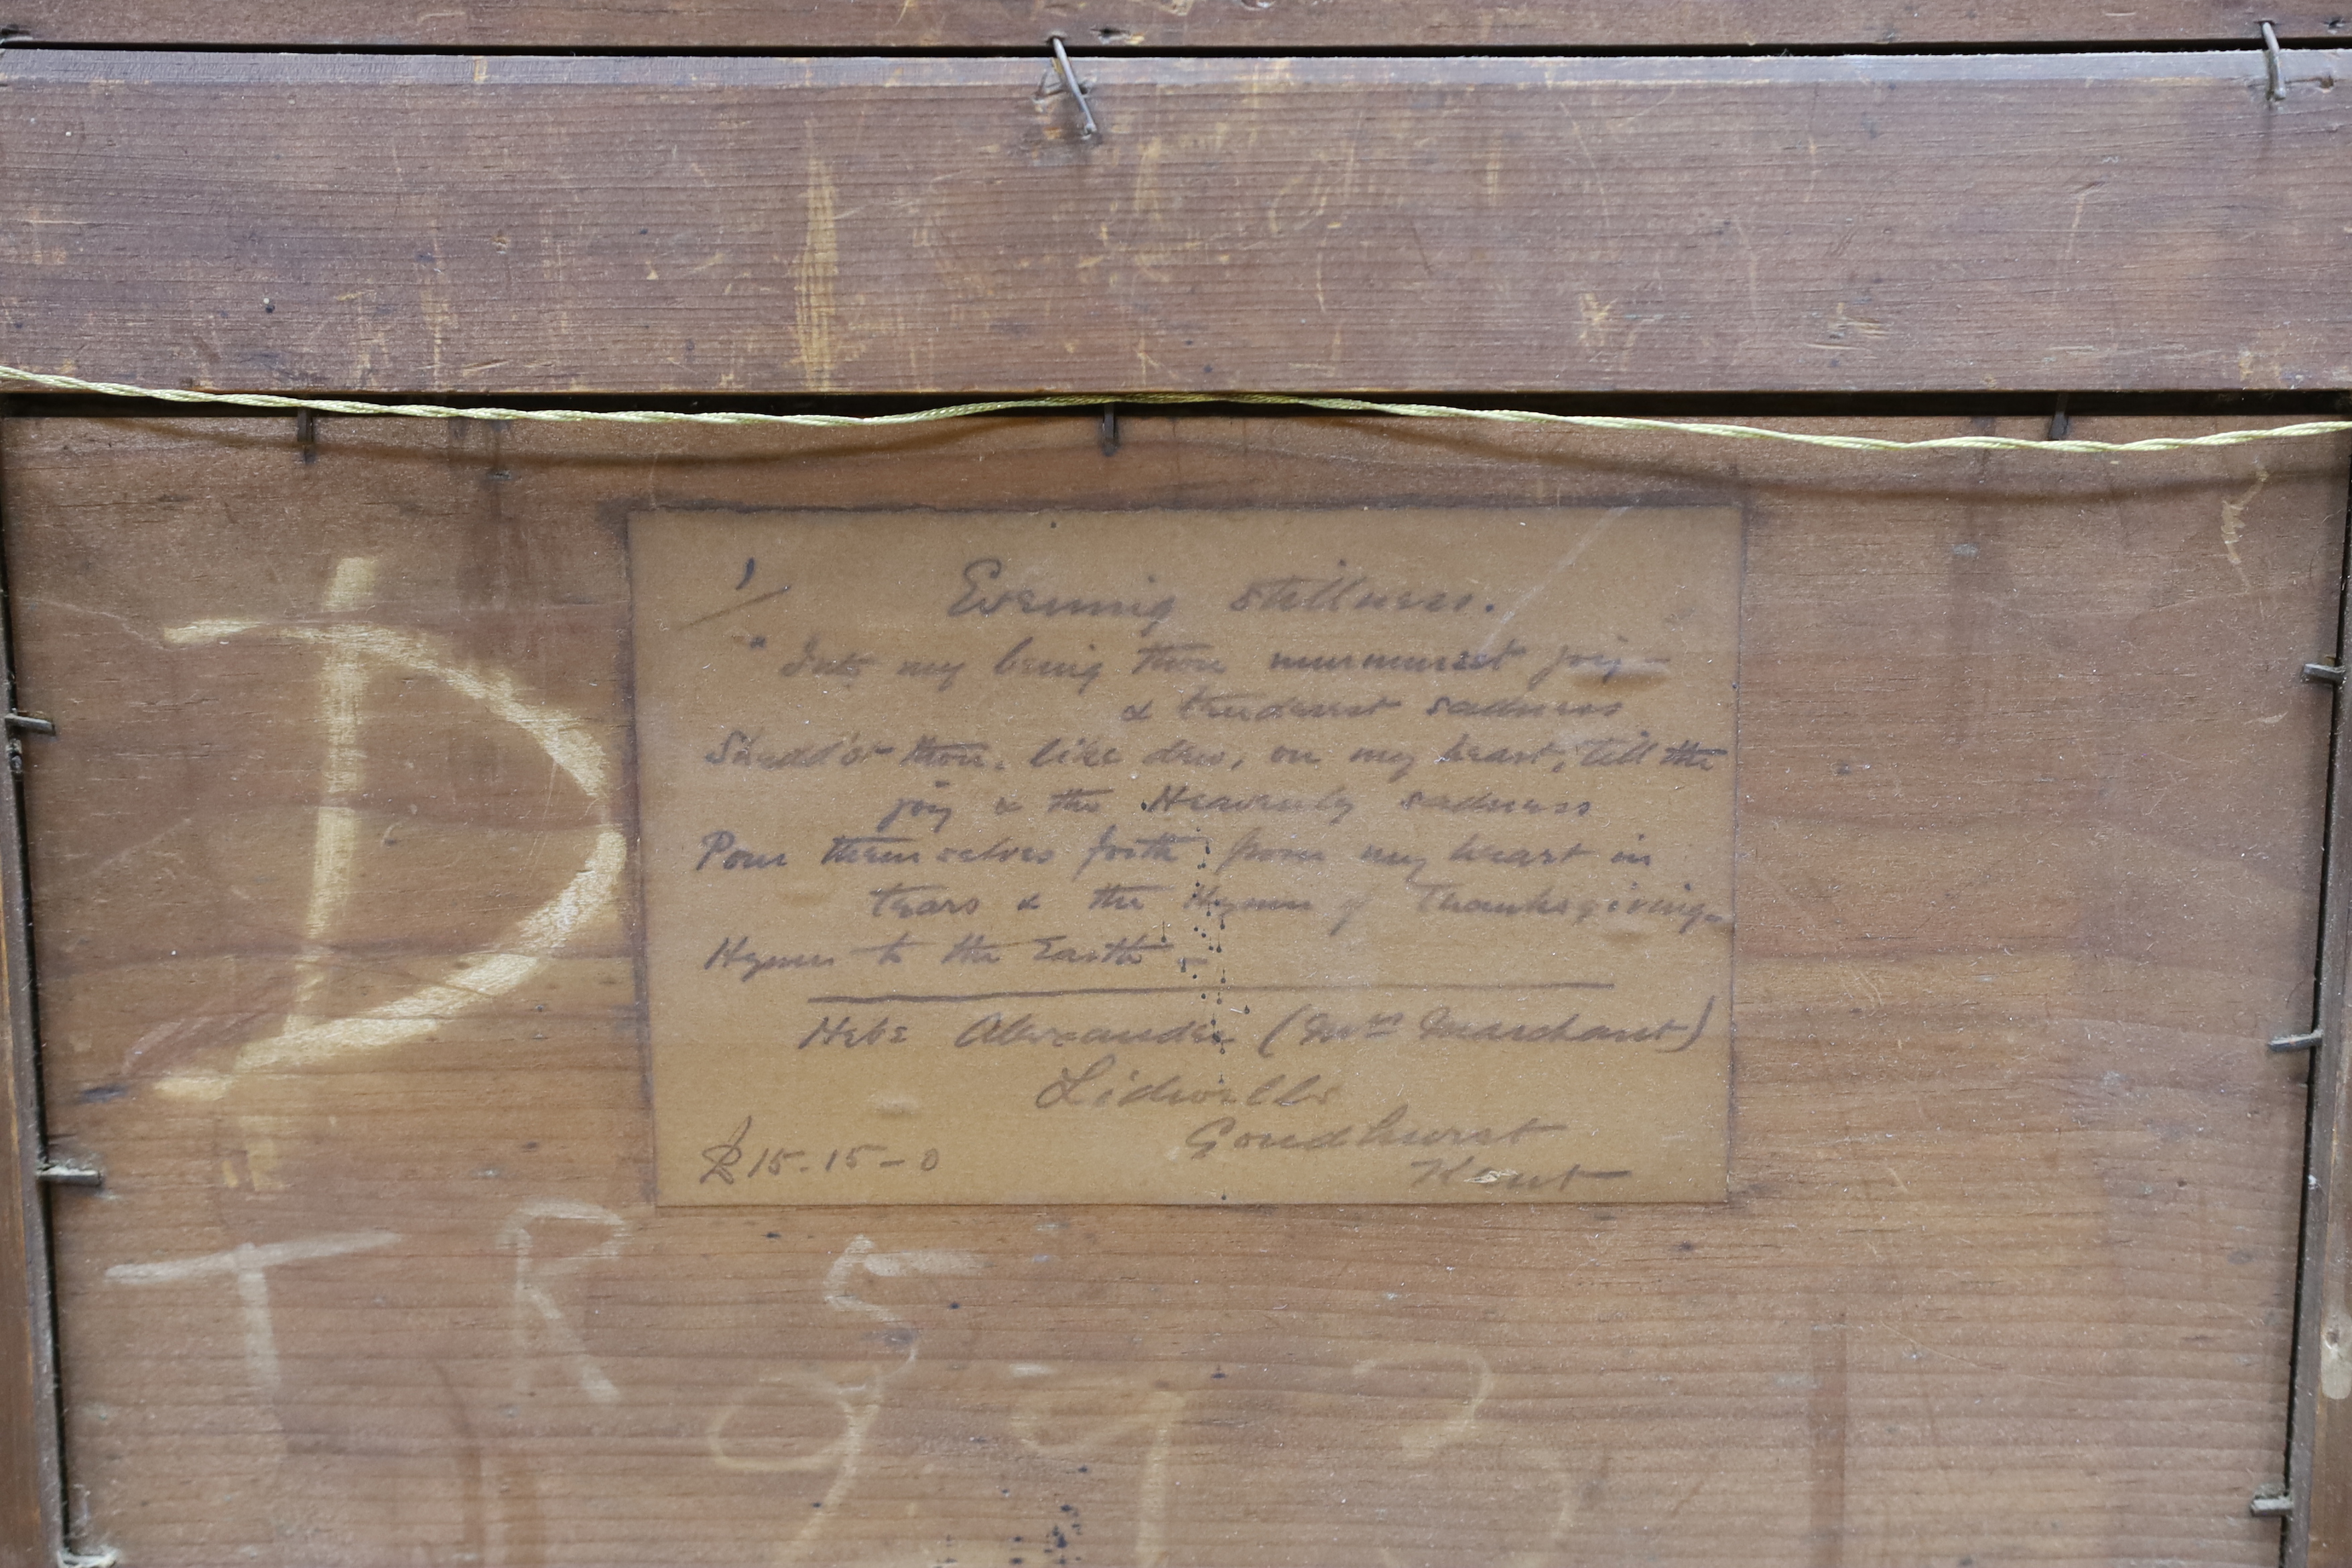 1/
Evening stillness.
" Into my being thou murmurest joy -
& tenderest sadness
Shedd'st thou, like dew, on my heart, till the
joy & the Heavenly sadness
Pour themselves forth from my heart in
tears & the Hymn of Thanksgiving.
Hymn to the Earth -
Hebe Alexander (Mrs Marchant)
Lidwells
Goudhurst
Kent
£15-15-0
D
TR 5
9 9 2